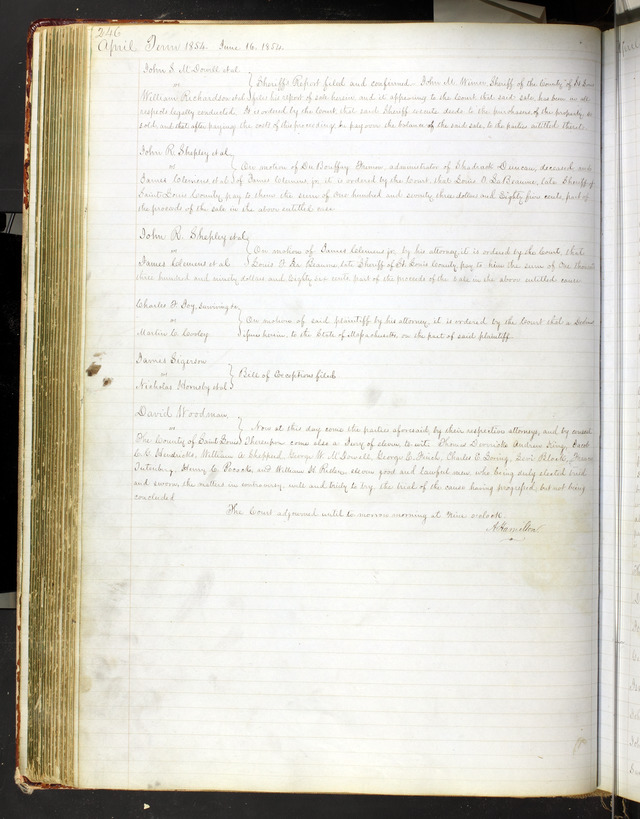 246
April Term 1854. June 16. 1854.
John S. McDowell et al
vs } Sheriff's Report filed and confirmed. John M. Wimer, Sheriff of the County of St Louis
William Richardson et al } files his report of sale herein and it appearing to the Court that said sale has been in all
respects legally conducted. It is ordered by the Court that said Sheriff execute deeds to the purchasers of the property so
sold and that after paying the costs of this proceeding he pay over the balance of the said sale, to the parties entitled thereto.
John R. Shepley et al
vs } On motion of administrator of Shadrack Duncan, deceased, and
James Clemens et al } of James Clemens jr. it is ordered by the Court, that Louis V. La Beaume, late Sheriff of
Saint Louis County pay to them the sum of One hundred and seventy three dollars and Eighty five cents, part of
the proceeds of the sale in the above entitled case
John R. Shepley et al
vs } On motion of James Clemens jr, by his attorney, it is ordered by the Court, that
James Clemens et al } Louis V. La Beaume, late Sheriff of St. Louis County pay to him the sum of One thousand
three hundred and ninety dollars and Eighty six cents, part of the proceeds of the sale in the above entitled cause
Charles F. Foy, surviving &c
vs } On motion of said plaintiff by his attorney, it is ordered by the Court that a dedimus
Martin C. } issue herein, to the State of Massachusetts on the part of said plaintiff.
James Sigerson
vs } Bill of Exceptions filed
Nicholas Hornsby et al
David Woodman
vs } Now at this day come the parties aforesaid, by their respective attorneys, and by consent
The County of Saint Louis } Thereupon come also a Jury of eleven to wit: Thomas Andrew King, Jacob
C. C. Hendricks, William A. Sheppard, George W. McDowell, George C. Finch, Charles C. Loring, Levi Block,
Henry C. Peacock and William H. eleven good and lawful men who being duly elected tried
and sworn, the matters in controversy well and truly to try, the trial of the cause having progressed, but not being
concluded
The Court adjourned until to morrow morning at nine o'clock.
A Hamilton